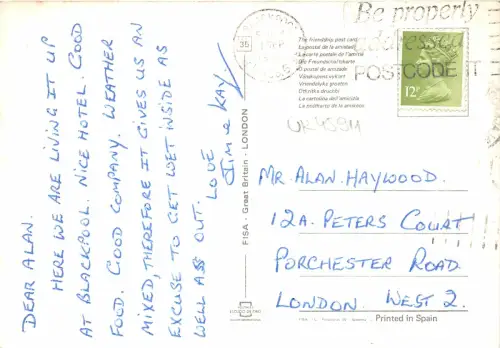 DEAR ALAN.
HERE WE ARE LIVING IT UP
AT BLACKPOOL. NICE HOTEL. GOOD
FOOD. GOOD COMPANY. WEATHER
MIXED, THEREFORE IT GIVES US AN
EXCUSE TO GET WET INSIDE AS
WELL AS OUT.
LOVE
Jim & KAY
FISA - Great Britain - LONDON
The friendship post card
La postal de la amistad
La carte postale de l'amitié
Die Freundschaftskarte
O postal de amizade
Vänskapsvykort
Vriendelijke groeten
La cartolina dell'amicizia
La postkarto de la amikeco
35
BLACKPOOL
Be properly
addressed
POSTCODE IT
12P
UK45911
MR. ALAN. HAYWOOD.
12A. PETERS COURT
PORCHESTER ROAD.
LONDON. WEST 2.
Printed in Spain